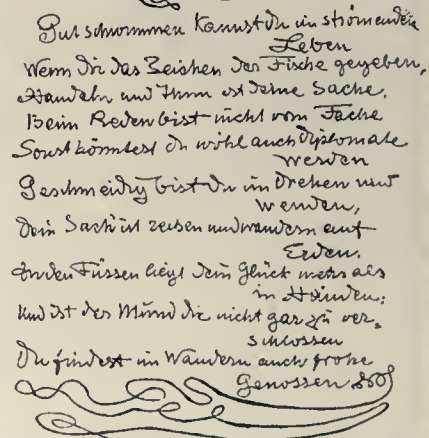 Gut schwimmen kannst Du im strömenden
Leben
Wenn Dir das Zeichen der Fische gegeben,
Handeln und Thun ist Deine Sache.
Beim Reden bist nicht vom Fache
Sonst könntest Du wohl auch Diplomate
werden
Geschmeidig bist Du im Drehen und
Wenden,
Dein Sach ist reisen und wandern auf
Erden.
In den Füssen liegt Dein Glück mehr als
in Händen:
Und ist der Mund Dir nicht gar zu ver=
schlossen
Du findest im Wandern auch frohe
Genossen